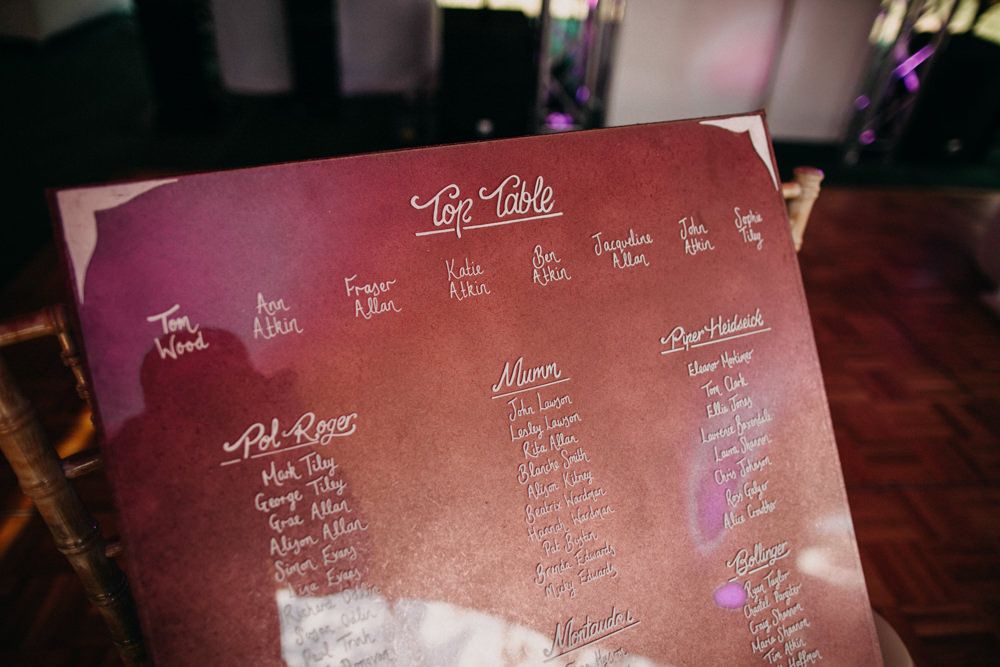 Top Table
Tom
Wood
Ann
Atkin
Fraser
Allan
Katie
Atkin
Ben
Atkin
Jacqueline
Allan
John
Atkin
Sophie
Tiley
Pol Roger
Mark Tiley
George Tiley
Grae Allan
Alison Allan
Simon Evans
Evans
Richard
Susan
Paul Trinh
Donovan
Mumm
John Lawson
Lesley Lawson
Rita Allan
Blanche Smith
Alison Kitney
Beatrix Wardman
Hannah Wardman
Pat Bustin
Brenda Edwards
Micky Edwards
Montaudon
Piper Heidseick
Eleanor Mortimer
Tom Clark
Ellie Jones
Lawrence Baxendale
Laura Shannon
Chris Johnson
Ross
Alice Crowther
Bollinger
Ryan Taylor
Chantel Pargiter
Craig Shannon
Maria Shannon
Tim Atkin
Hoffman